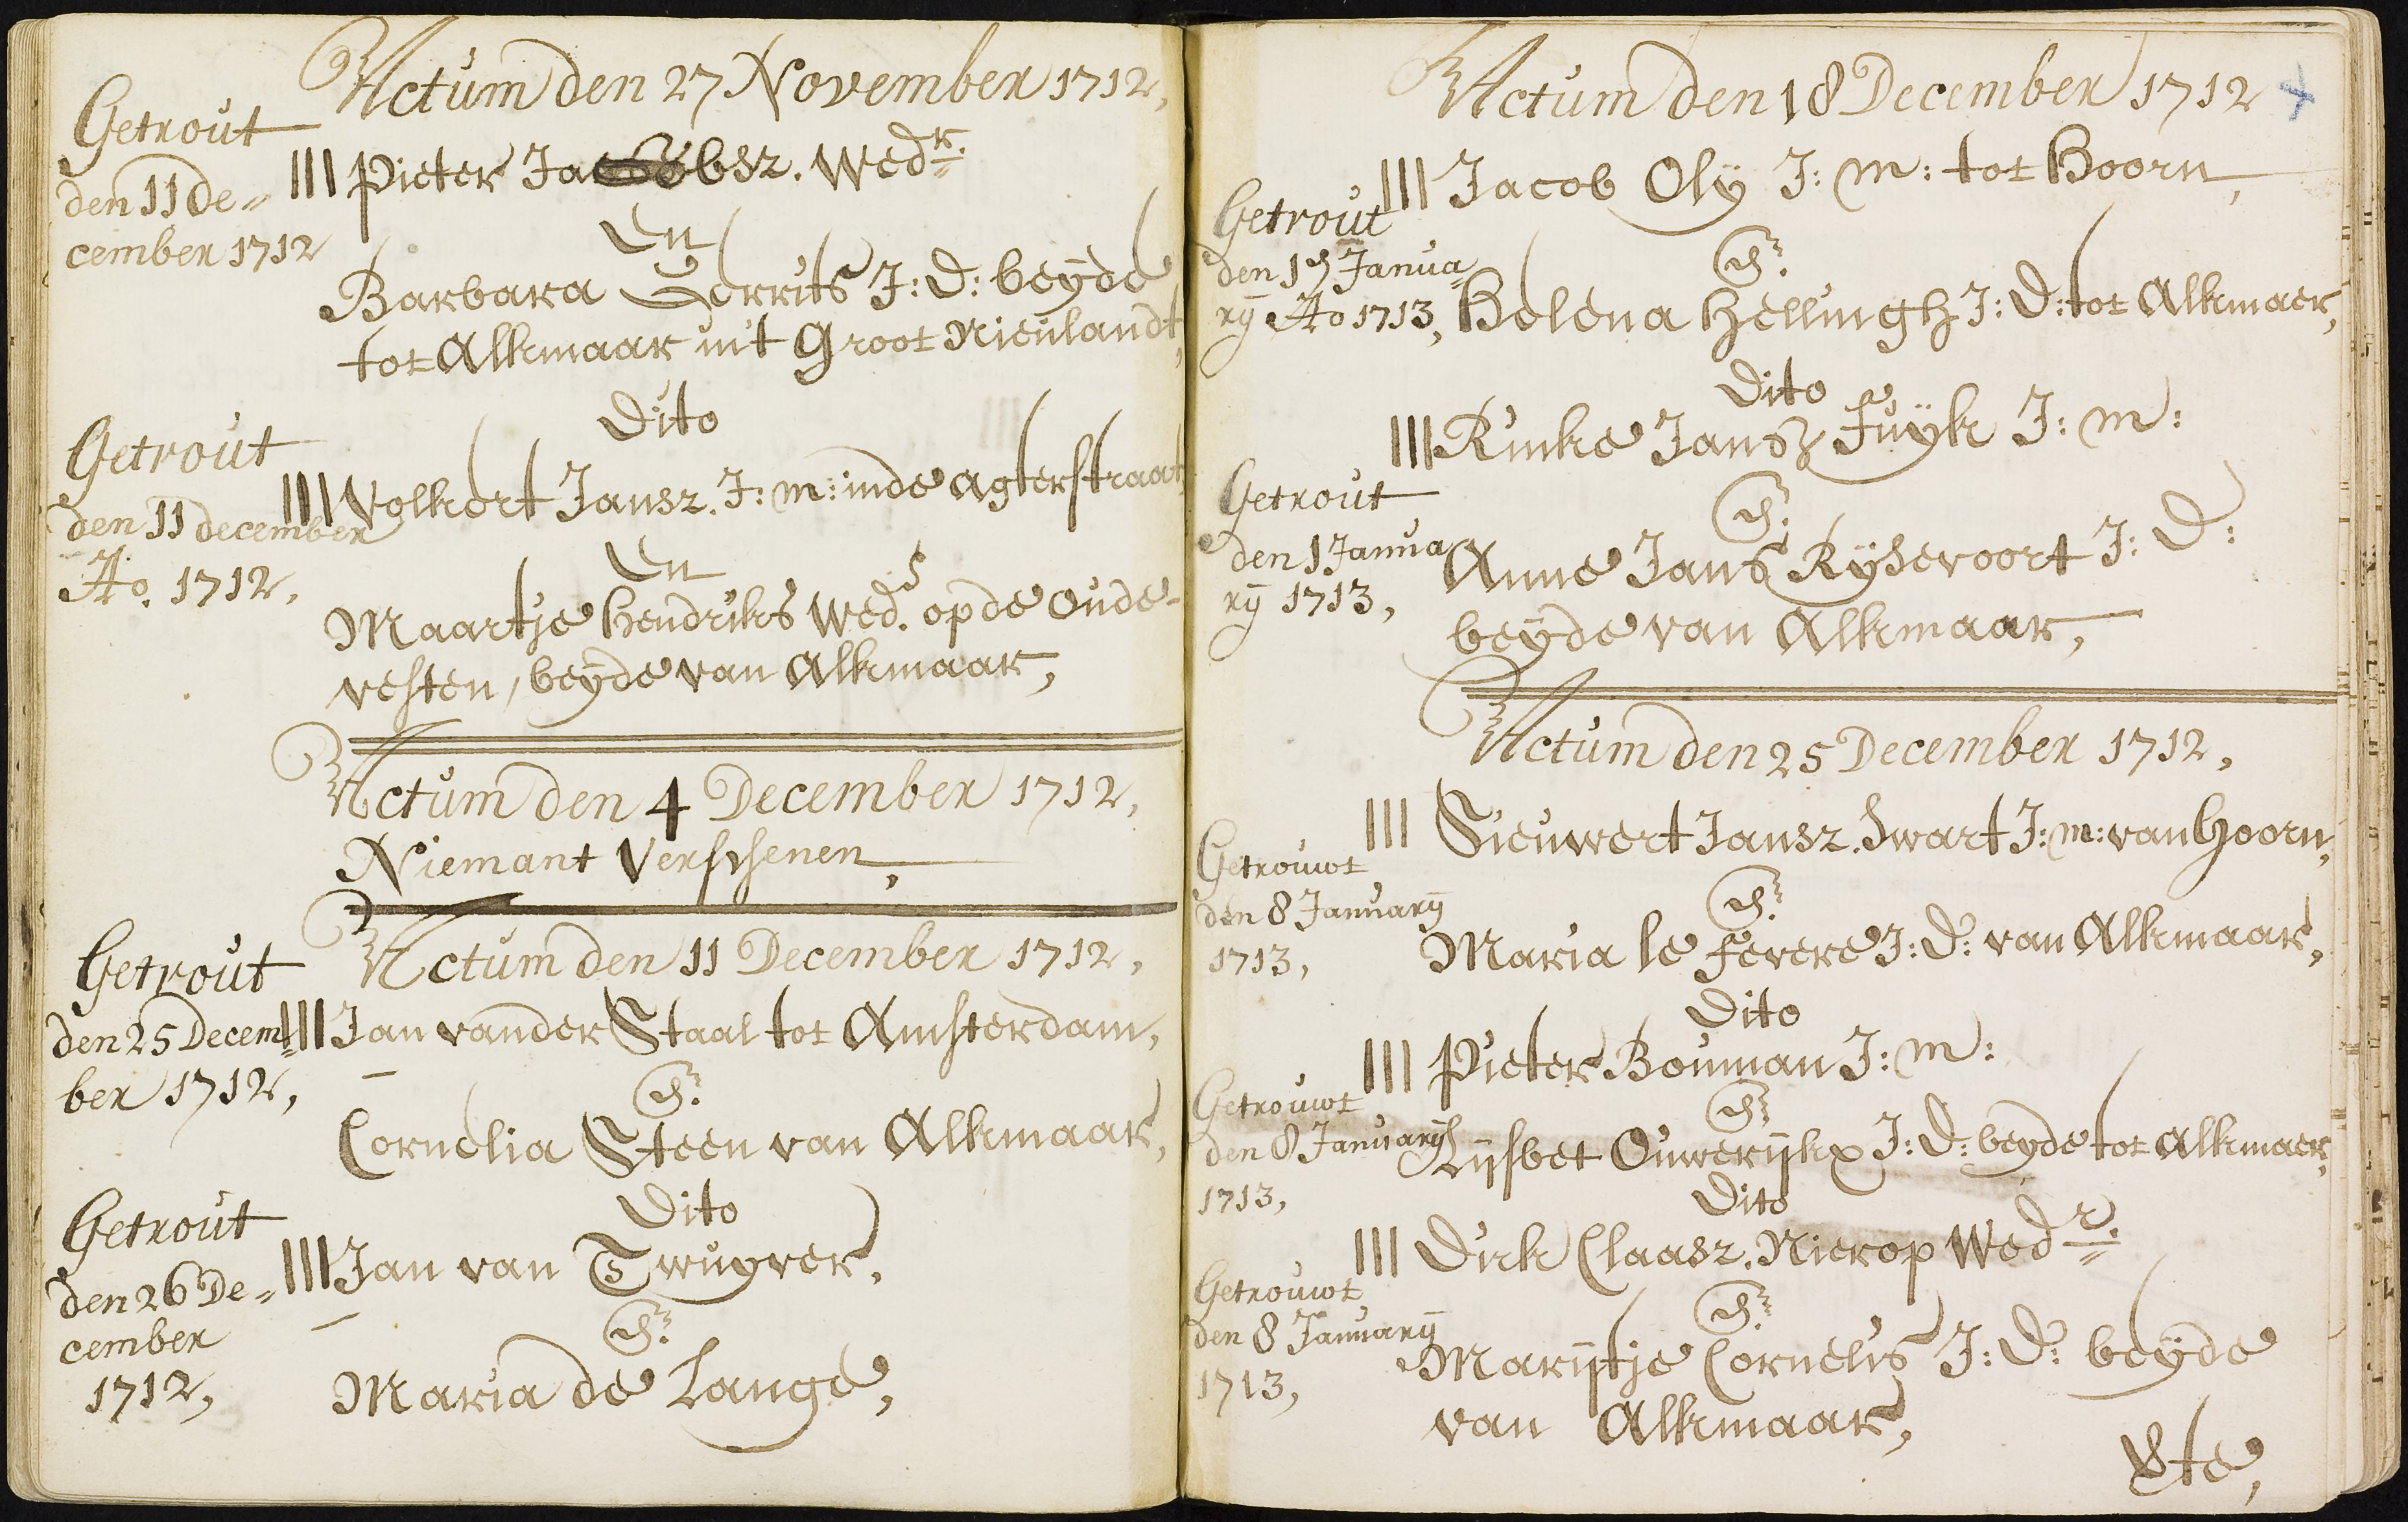 Actum den 27 November 1712,
Getrout
den 11 De=
cember 1712
III Pieter Jacobsz. Wedr.
En
Barbara Gerrits J: D: beÿde
tot Alkmaar in't Groot Nieulandt,
Dito
Getrout
den 11 december
Ao. 1712,
III Volkert Jansz. J: m: inde Agterstraat,
En
Maartje Hendriks Wed.e op de Oude-
vesten, beÿde van Alkmaar,
Actum den 4 December 1712,
Niemant Verschenen,
Actum den 11 December 1712,
Getrout
den 25 Decem=
ber 1712,
III Jan vander Staal tot Amsterdam,
en
Cornelia Steen van Alkmaar,
Dito
Getrout
den 26 De=
cember
1712,
III Jan van Twuyver,
en
Maria de Lange,
Actum den 18 December 1712
Getrout
den 1 Janua=
rÿ Ao 1713,
III Jacob Olÿ J: m: tot Hoorn,
en
Helena Hellingh J: D: tot Alkmaer,
Dito
Getrout
den 1 Janua
rÿ 1713,
III Rinke Jansz Fuÿk J: m:
en
Anne Jans Rÿsevoort J: D:
beÿde van Alkmaar,
Actum den 25 December 1712,
Getrouwt
den 8 Januarÿ
1713,
III Sieuwert Jansz. Swart J: m: van Hoorn,
en
Maria le Fevere J: D: van Alkmaar,
Dito
Getrouwt
den 8 Januarÿ
1713,
III Pieter Bouman J: m:
en
Lijsbet Ouwerijkx J: D: beyde tot Alkmaer,
Dito
Getrouwt
den 8 Januarÿ
1713,
III Dirk Claasz. Nierop Wedr.
en
Marijtje Cornelis J: D: beÿde
van Alkmaar,